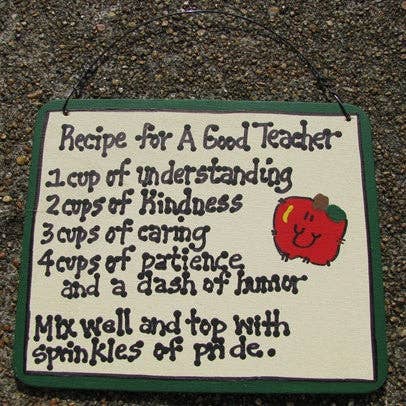 Recipe for A Good Teacher
1 cup of understanding
2 cups of Kindness
3 cups of caring
4 cups of patience
and a dash of humor
Mix well and top with
sprinkles of pride.